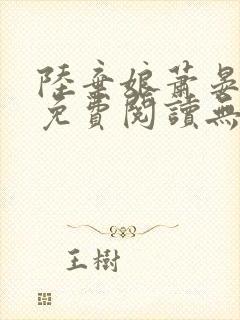 陸棄娘蕭晏
免費閱讀無
王樹